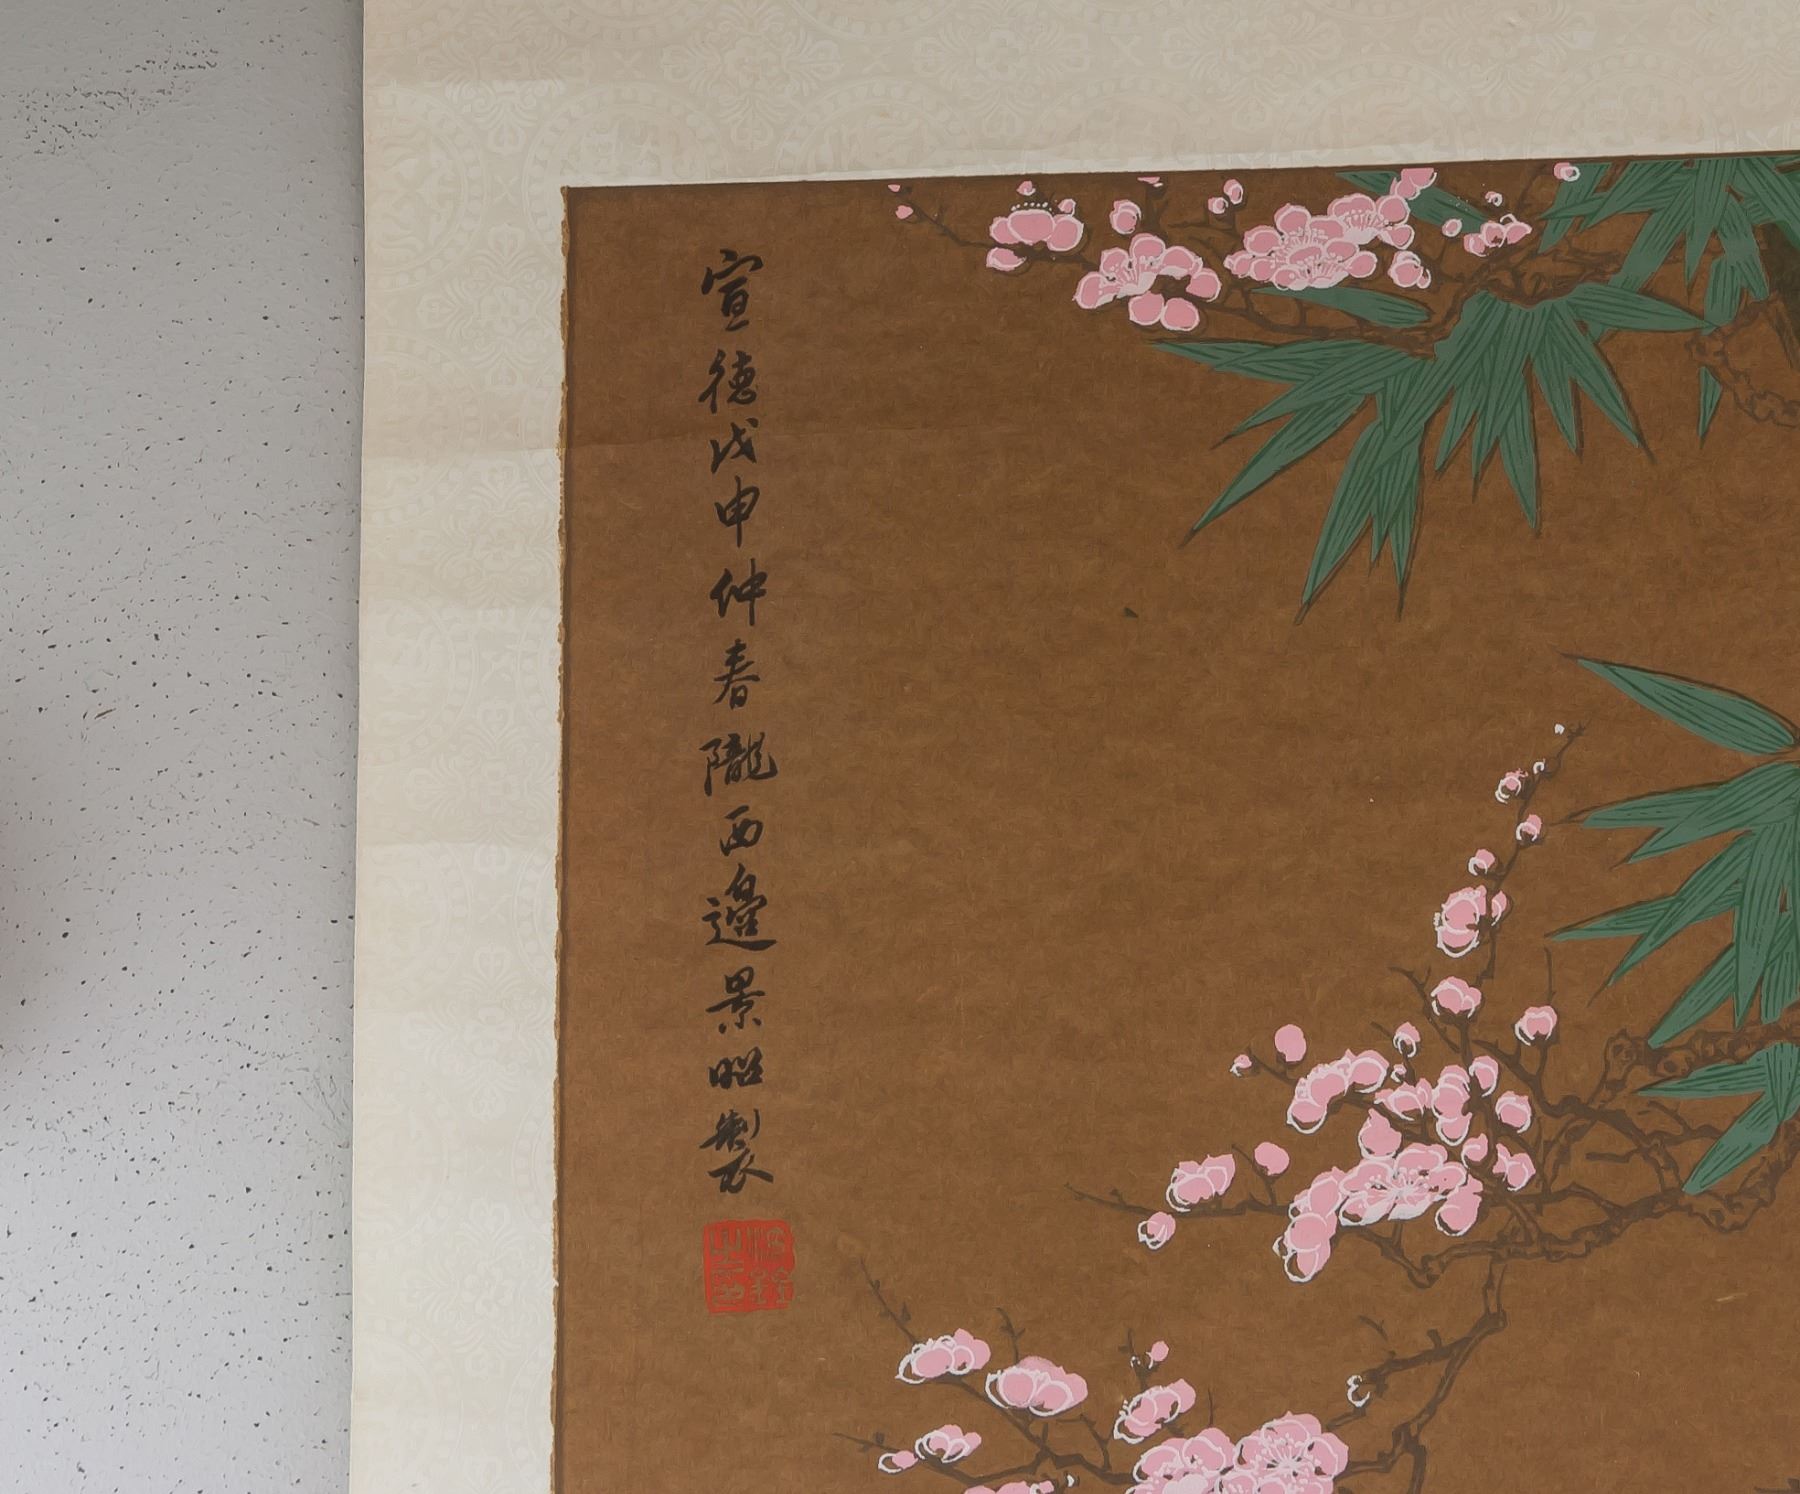 宣德戊申仲春隴西邊景昭製